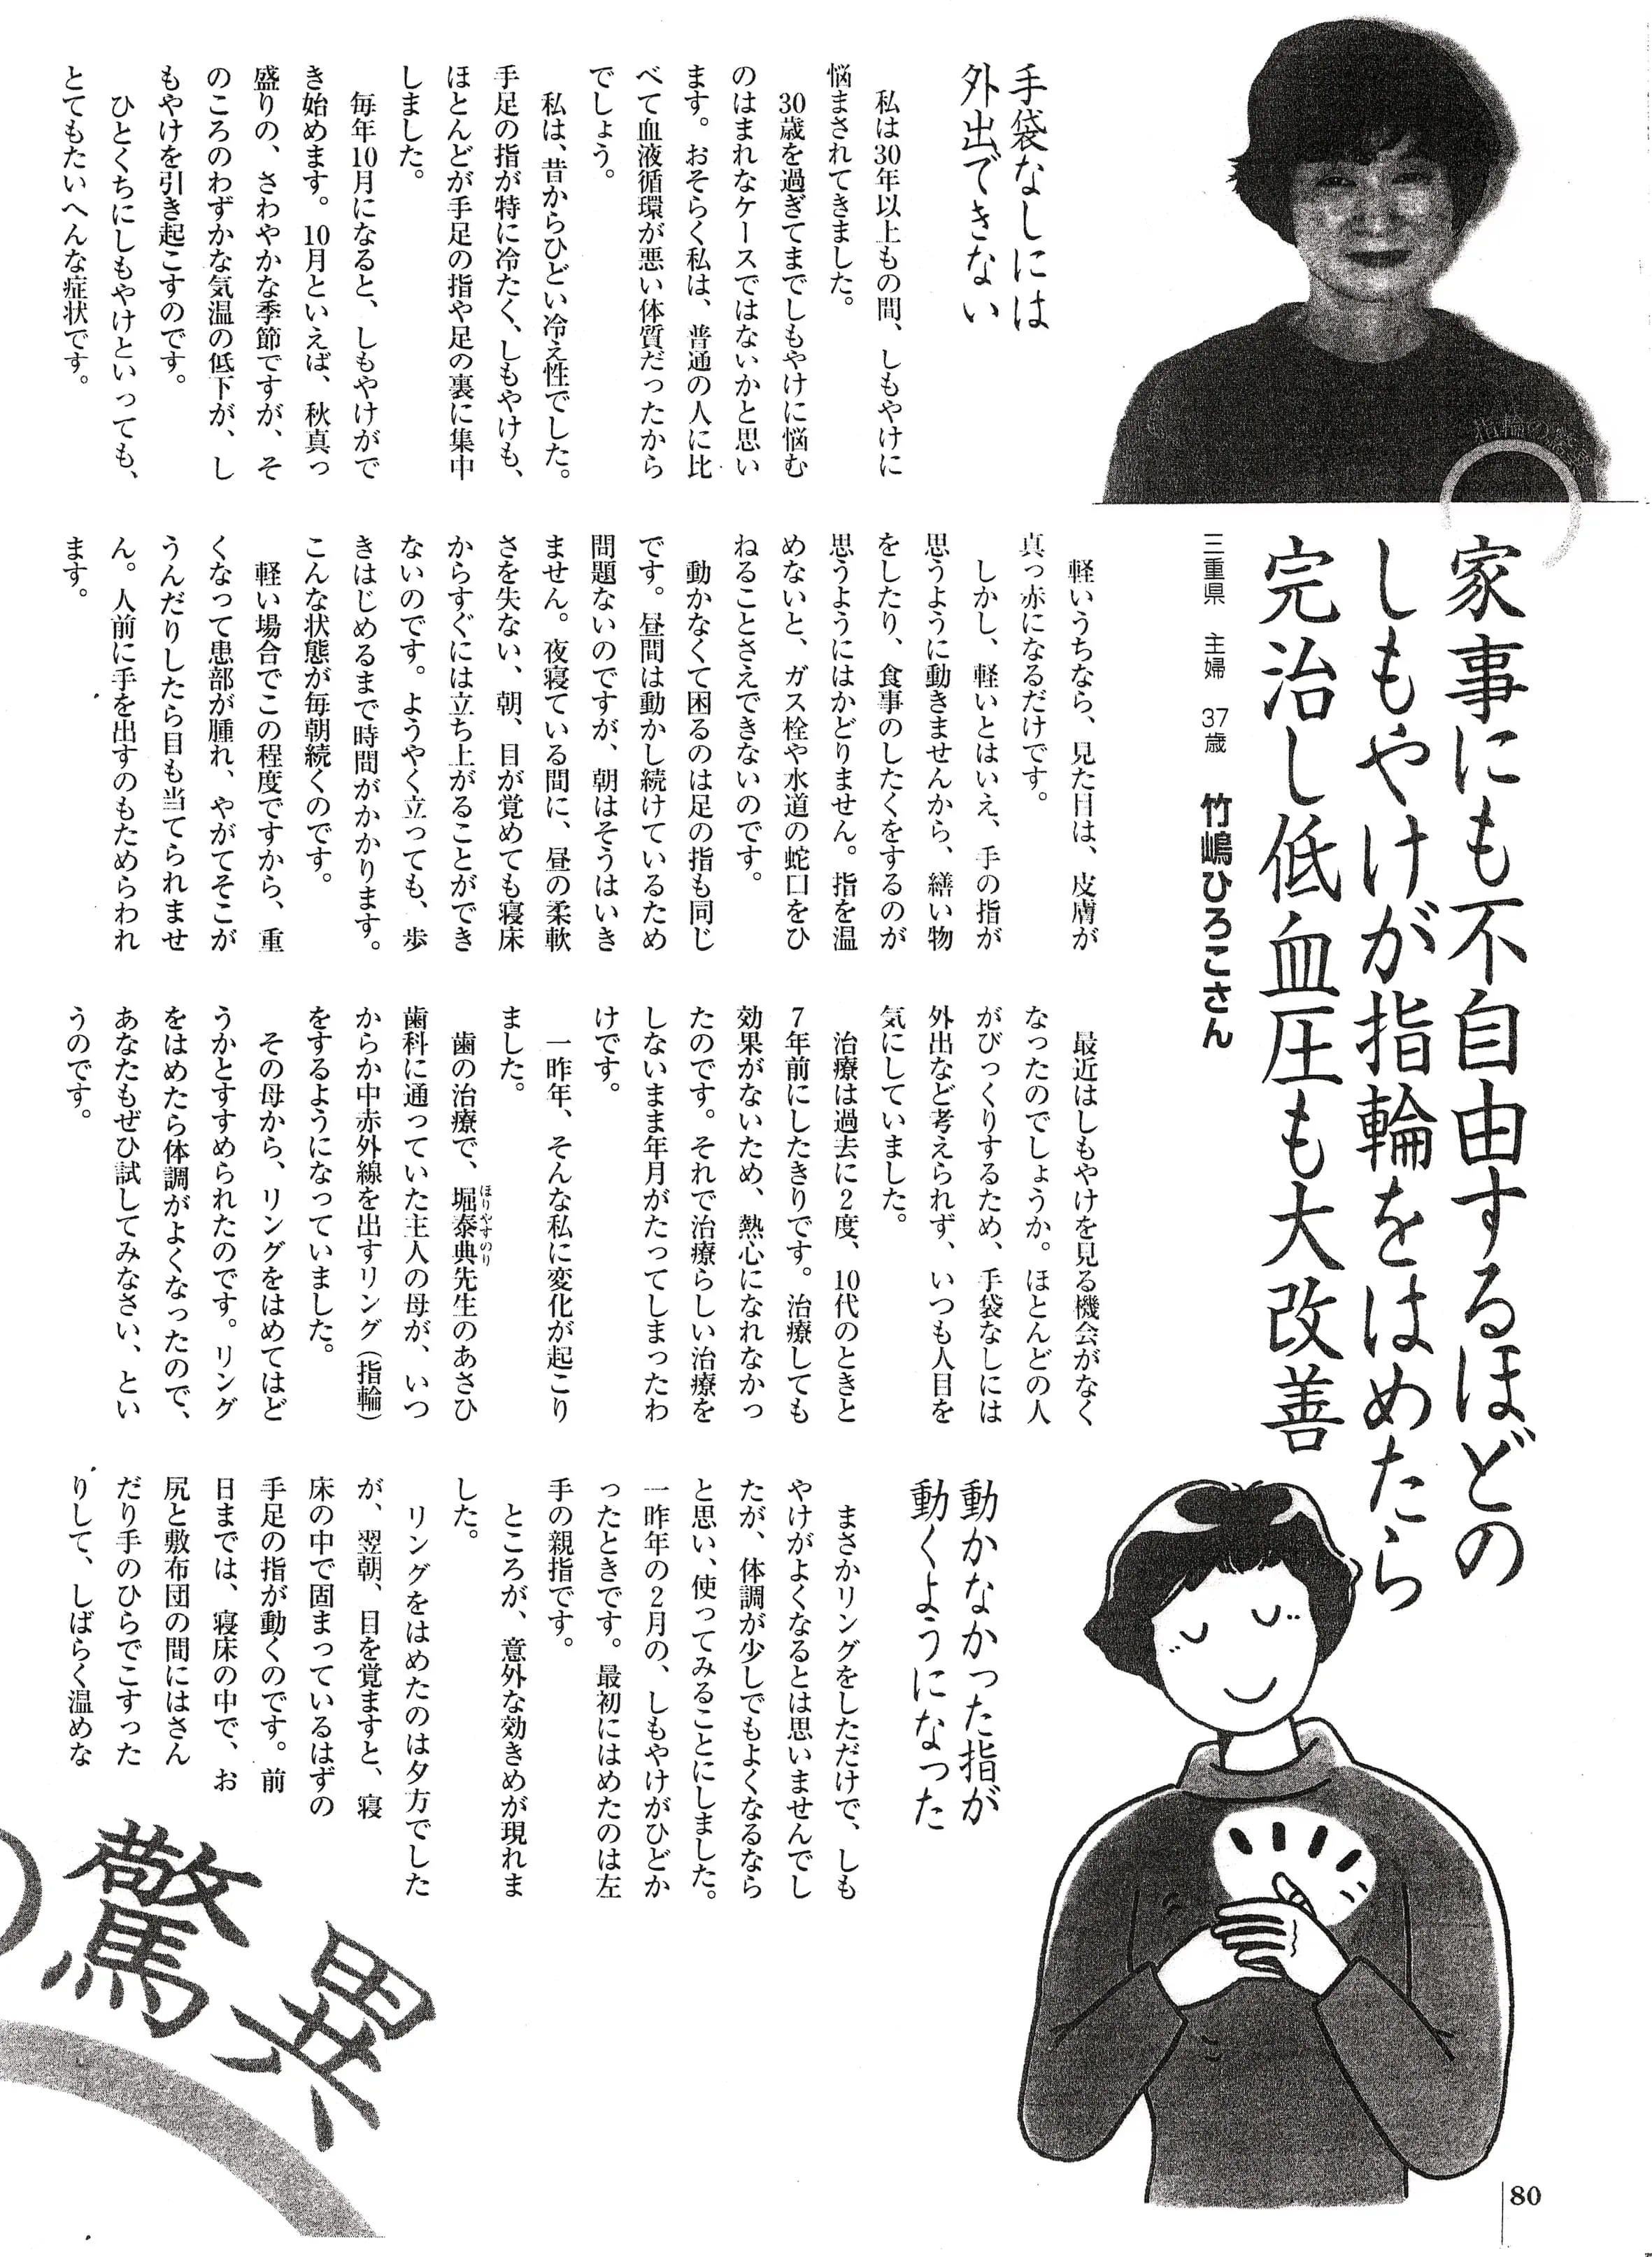 家事にも不自由するほどの
しもやけが指輪をはめたら
完治し低血圧も大改善
三重県 主婦 37歳 竹嶋ひろこさん
手袋なしには
外出できない
私は30年以上もの間、しもやけに
悩まされてきました。
30歳を過ぎてまでしもやけに悩む
のはまれなケースではないかと思い
ます。おそらく私は、普通の人に比
べて血液循環が悪い体質だったから
でしょう。
私は、昔からひどい冷え性でした。
手足の指が特に冷たく、しもやけも、
ほとんどが手足の指や足の裏に集中
しました。
毎年10月になると、しもやけがで
き始めます。10月といえば、秋真っ
盛りの、さわやかな季節ですが、そ
のころのわずかな気温の低下が、し
もやけを引き起こすのです。
ひとくちにしもやけといっても、
とてもたいへんな症状です。
軽いうちなら、見た目は、皮膚が
真っ赤になるだけです。
しかし、軽いとはいえ、手の指が
思うように動きませんから、繕い物
をしたり、食事のしたくをするのが
思うようにはかどりません。指を温
めないと、ガス栓や水道の蛇口をひ
ねることさえできないのです。
動かなくて困るのは足の指も同じ
です。昼間は動かし続けているため
問題ないのですが、朝はそうはいき
ません。夜寝ている間に、昼の柔軟
さを失ない、朝、目が覚めても寝床
からすぐには立ち上がることができ
ないのです。ようやく立っても、歩
きはじめるまで時間がかかります。
こんな状態が毎朝続くのです。
軽い場合でこの程度ですから、重
くなって患部が腫れ、やがてそこが
うんだりしたら目も当てられませ
ん。人前に手を出すのもためらわれ
ます。
最近はしもやけを見る機会がなく
なったのでしょうか。ほとんどの人
がびっくりするため、手袋なしには
外出など考えられず、いつも人目を
気にしていました。
治療は過去に2度、10代のときと
7年前にしたきりです。治療しても
効果がないため、熱心になれなかっ
たのです。それで治療らしい治療を
しないまま年月がたってしまったわ
けです。
一昨年、そんな私に変化が起こり
ました。
歯の治療で、堀泰典先生のあさひ
ほりやすのり
歯科に通っていた主人の母が、いつ
からか中赤外線を出すリング(指輪)
をするようになっていました。
その母から、リングをはめてはど
うかとすすめられたのです。リング
をはめたら体調がよくなったので、
あなたもぜひ試してみなさい、とい
うのです。
動かなかった指が
動くようになった
まさかリングをしただけで、しも
やけがよくなるとは思いませんでし
たが、体調が少しでもよくなるなら
と思い、使ってみることにしました。
一昨年の2月の、しもやけがひどか
ったときです。最初にはめたのは左
手の親指です。
ところが、意外な効きめが現れま
した。
リングをはめたのは夕方でした
が、翌朝、目を覚ますと、寝
床の中で固まっているはずの
手足の指が動くのです。前
日までは、寝床の中で、お
尻と敷布団の間にはさん
だり手のひらでこすった
りして、しばらく温めな
の驚異
80